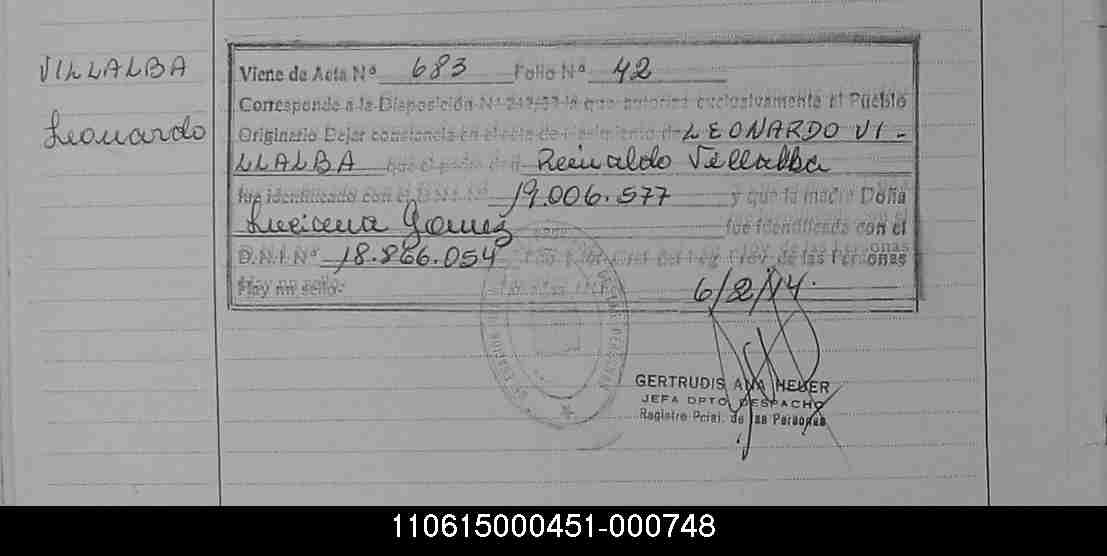 VILLALBA
Leonardo
Viene de Acta Nº 683 Folio Nº 42
Corresponde a la Disposición Nº la que autoriza exclusivamente al Pueblo
Originario Dejar constancia en el acta de Nacimiento de LEONARDO VI-
LLALBA que el padre Reinaldo Villalba
fue identificado con el 19.006.577 y que la madre Doña
Luciana Gomez fue identificada con el
D.N.I. Nº 18.866.054 de las Personas
Hay un sello. 6/2/14.
GERTRUDIS ANA HEUER
JEFA DPTO DESPACHO
Registro Pcial. de las Personas
110615000451-000748